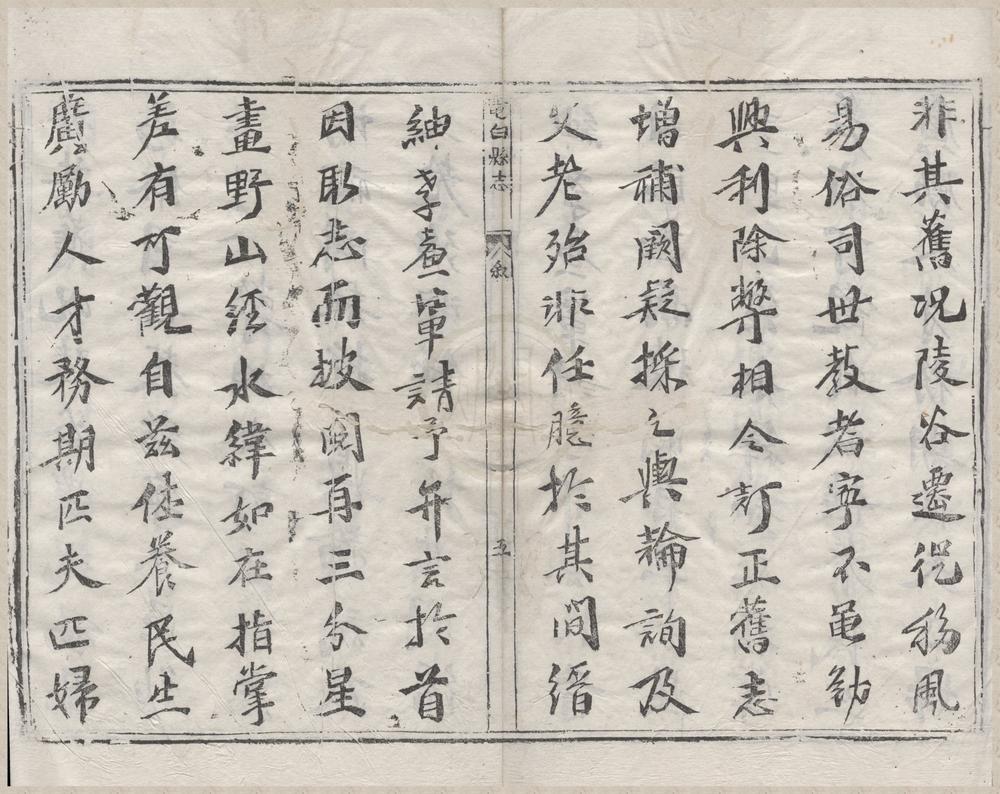 非其舊况陵谷遷徙移風
易俗司世教者寧不黽勉
興利除弊相今訂正舊志
增補闕疑採之輿論詢及
父老殆非任臆於其間縉
電白縣志 叙 五
紳李盧軰請予弁言於首
因取志而披閱再三分星
畫野山經水緯如在指掌
差有可觀自兹徃養民生
廣勵人才務期匹夫匹婦